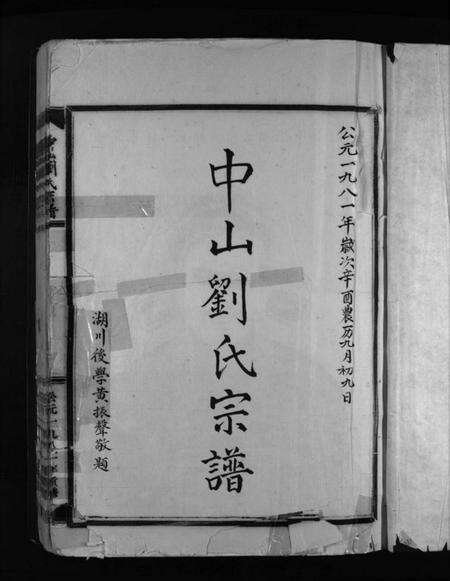 公元一九八一年歲次辛酉農历九月初九日
中山劉氏宗譜
湖川後學黄振聲敬題